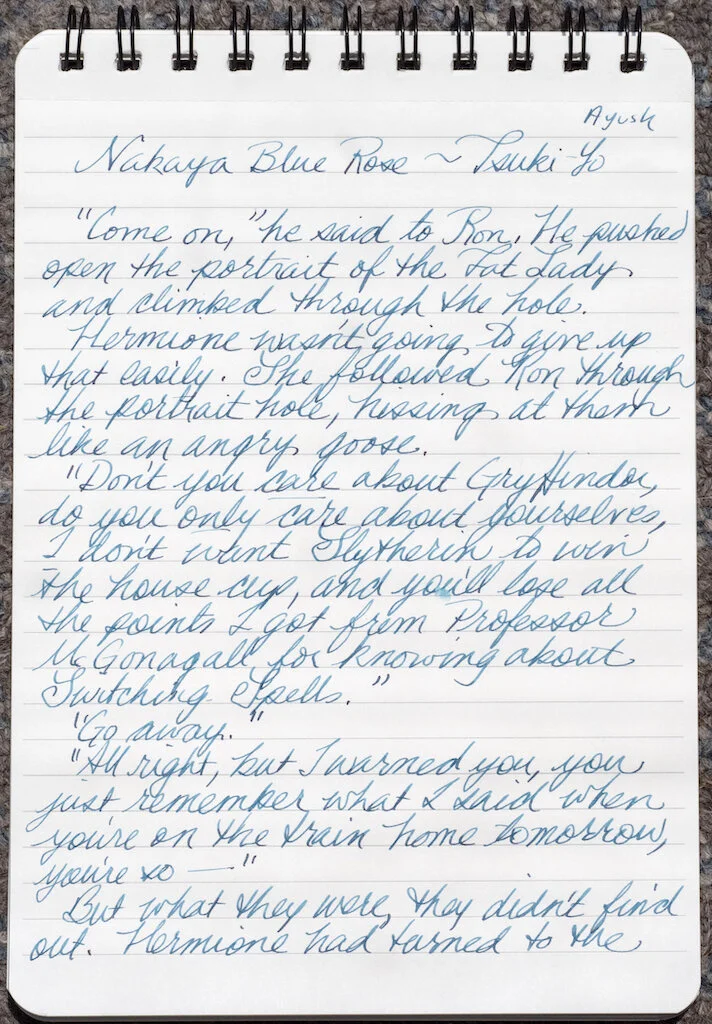 Ayush
Nakaya Blue Rose ~ Tsuki-Yo
"Come on," he said to Ron. He pushed
open the portrait of the Fat Lady
and climbed through the hole.
Hermione wasn't going to give up
that easily. She followed Ron through
the portrait hole, hissing at them
like an angry goose.
"Don't you care about Gryffindor,
do you only care about yourselves,
I don't want Slytherin to win
the house cup, and you'll lose all
the points I got from Professor
McGonagall for knowing about
Switching Spells."
"Go away."
"All right, but I warned you, you
just remember what I said when
you're on the train home tomorrow,
you're so —"
But what they were, they didn't find
out. Hermione had turned to the